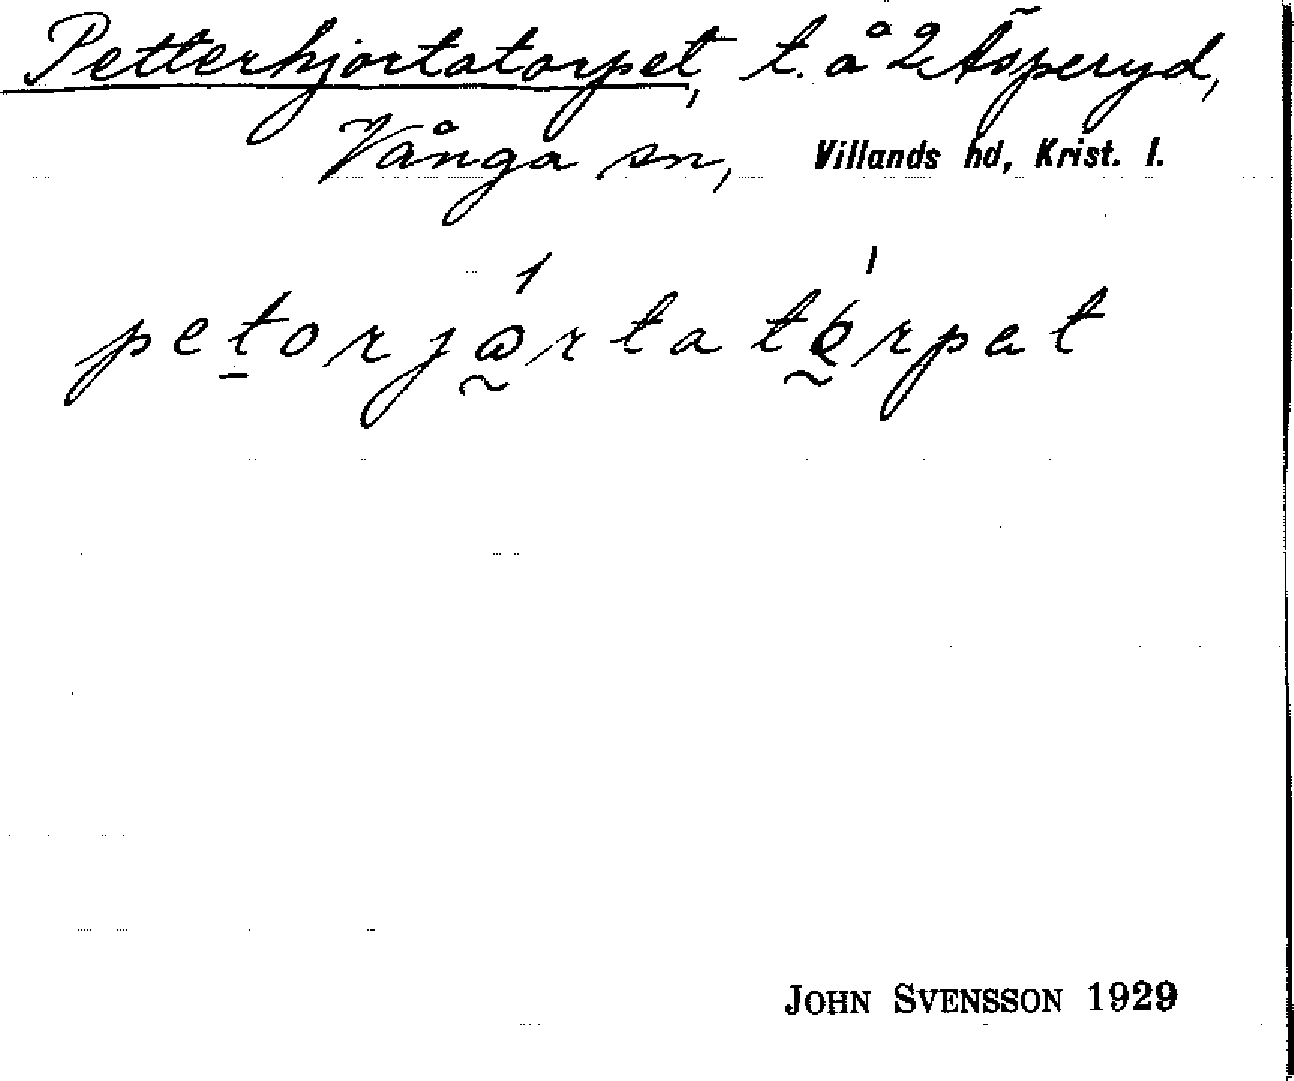 Petterhjortatorpet, t. å 2 Åsperyd,
Vånga sn, Villands hd, Krist. l.
petorjørtatørpet
JOHN SVENSSON 1929